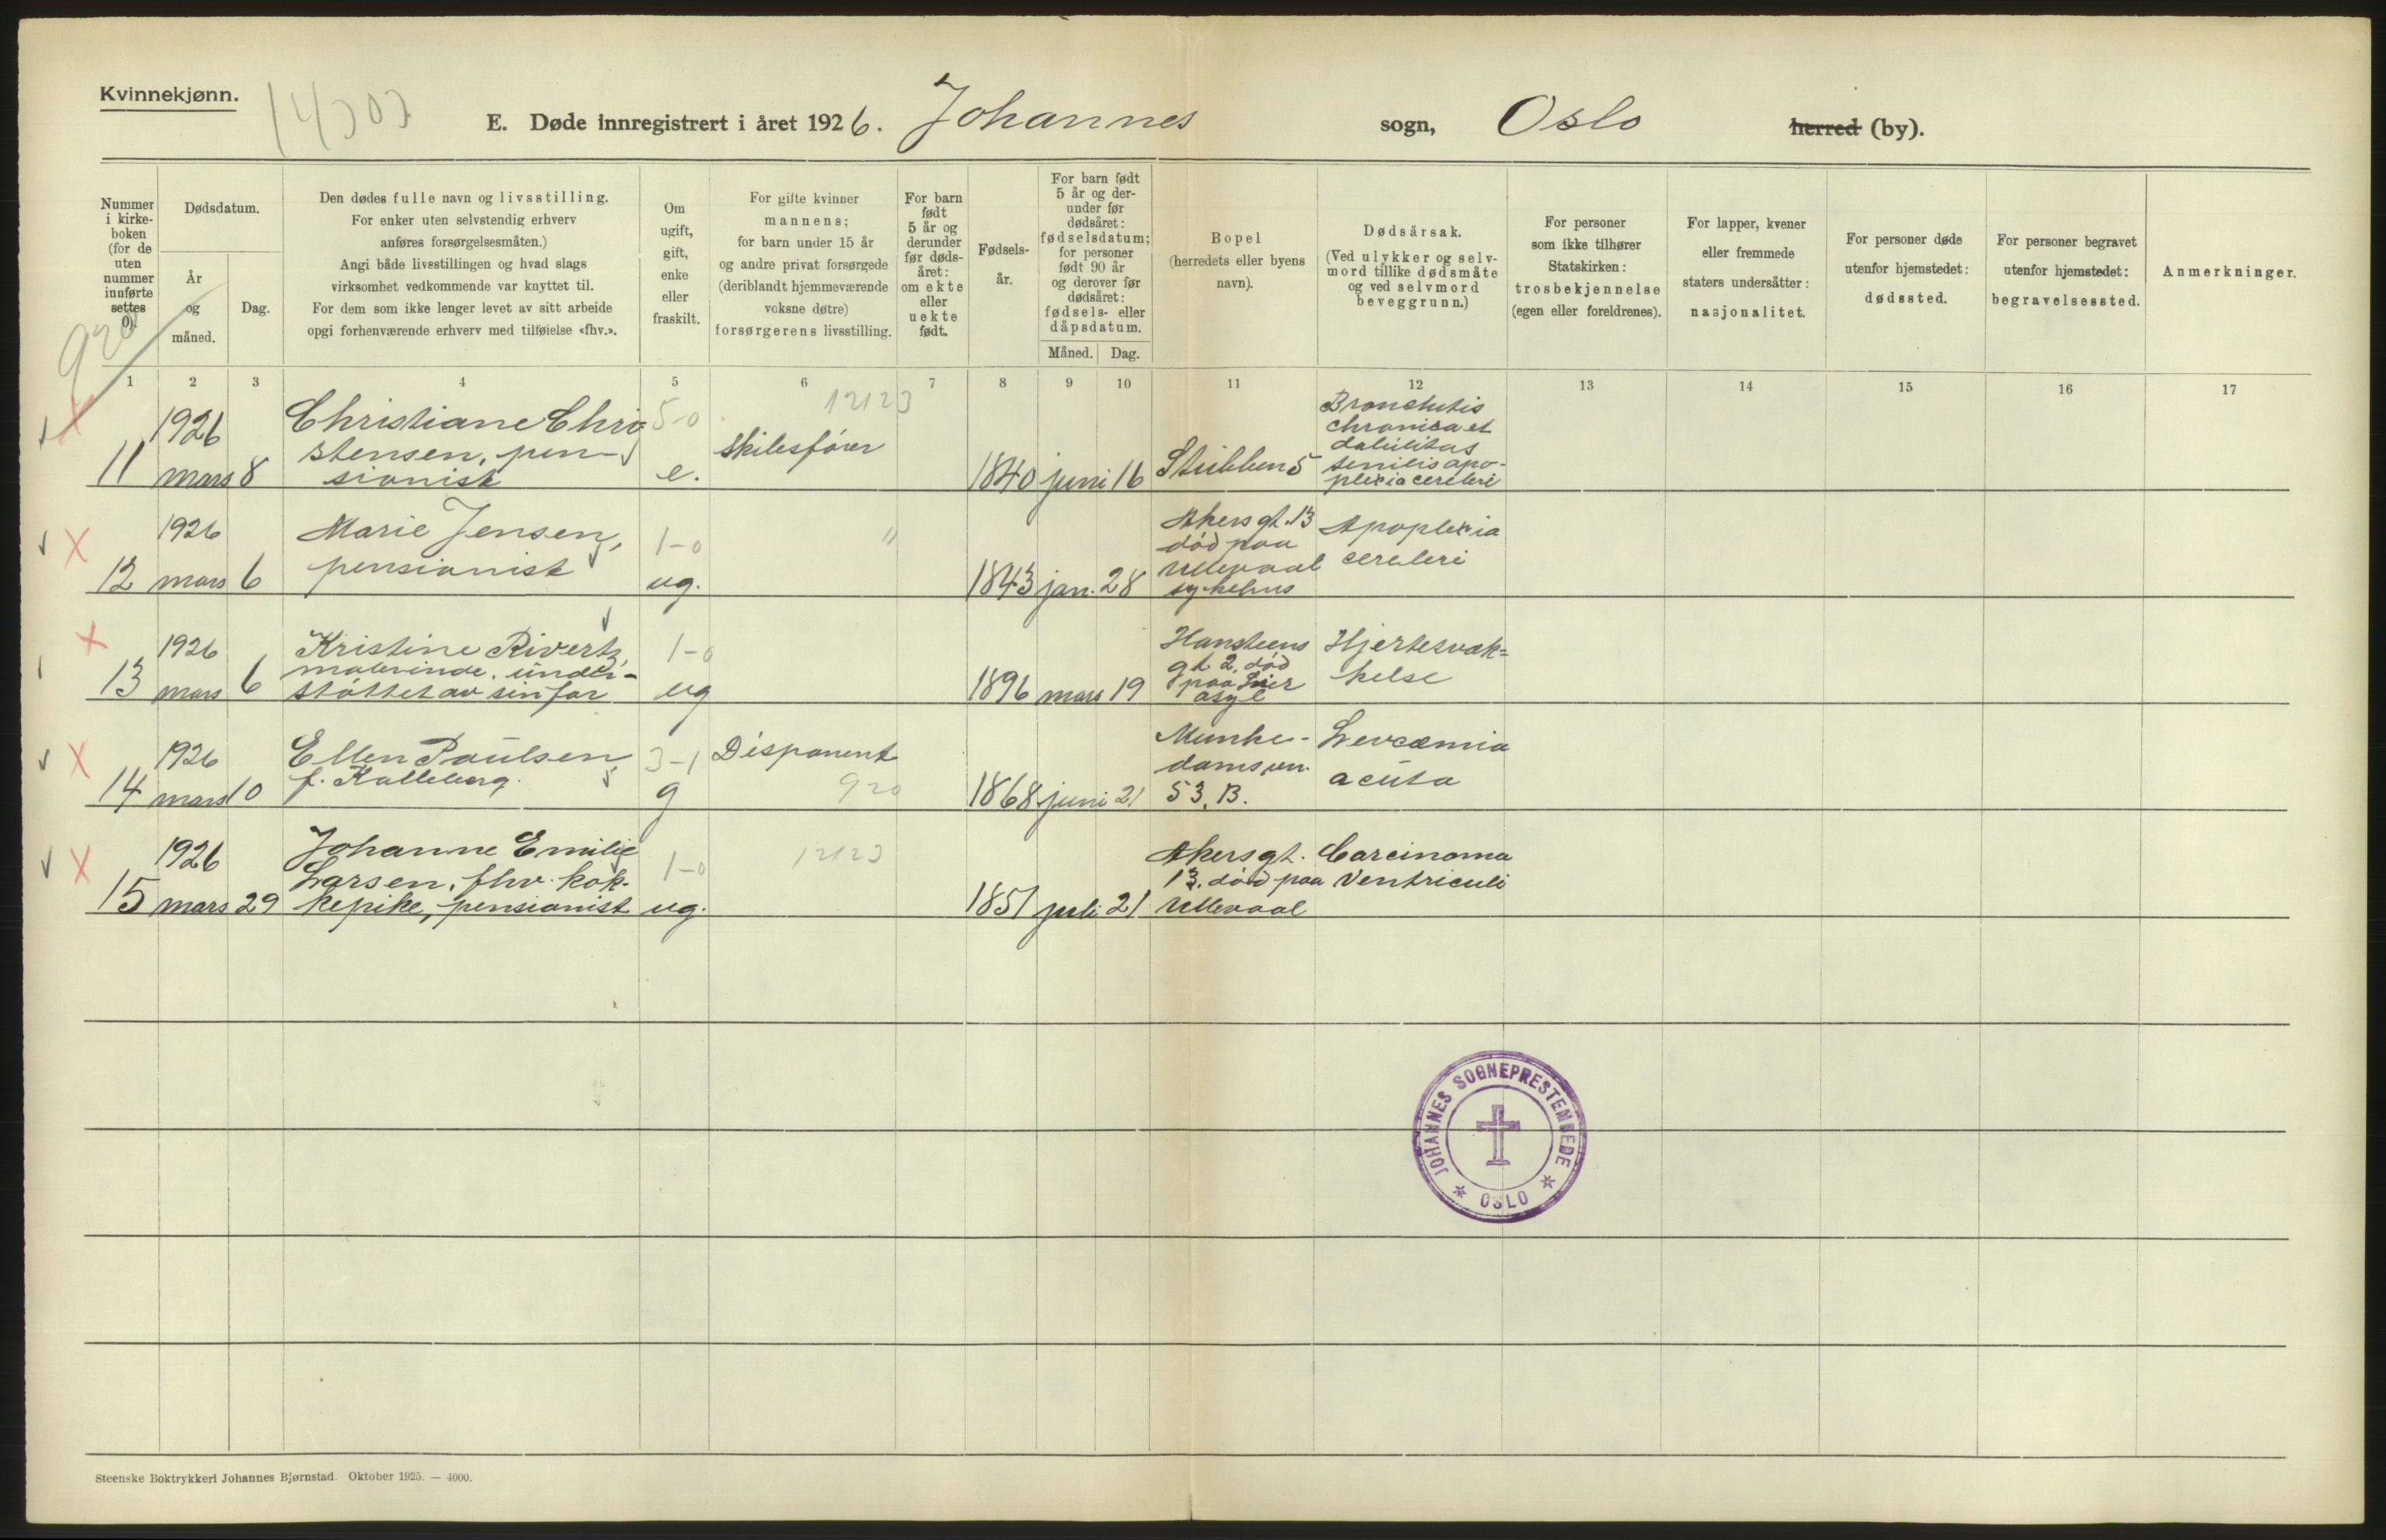 Kvinnekjønn.
E. Døde innregistrert i året 1926. Johannes sogn, Oslo herred (by).
Nummer
i kirke-
boken
(for de
uten
nummer
innførte
settes
0).
Dødsdatum.
År
og
måned.
Dag.
Den dødes fulle navn og livsstilling.
For enker uten selvstendig erhverv
anføres forsørgelsesmåten.)
Angi både livsstillingen og hvad slags
virksomhet vedkommende var knyttet til.
For dem som ikke lenger levet av sitt arbeide
opgi forhenværende erhverv med tilføielse «fhv.».
Om
ugift,
gift,
enke
eller
fraskilt.
For gifte kvinner
mannens;
for barn under 15 år
og andre privat forsørgede
(deriblandt hjemmeværende
voksne døtre)
forsørgerens livsstilling.
For barn
født
5 år og
derunder
før døds-
året:
om ekte
eller
uekte
født.
Fødsels-
år.
For barn født
5 år og der-
under før
dødsåret:
fødselsdatum;
for personer
født 90 år
og derover før
dødsåret:
fødsels- eller
dåpsdatum.
Måned.
Dag.
Bopel
(herredets eller byens
navn).
Dødsårsak.
(Ved ulykker og selv-
mord tillike dødsmåte
og ved selvmord
beveggrunn.)
For personer
som ikke tilhører
Statskirken:
trosbekjennelse
(egen eller foreldrenes).
For lapper, kvener
eller fremmede
staters undersåtter:
nasjonalitet.
For personer døde
utenfor hjemstedet:
dødssted.
For personer begravet
utenfor hjemstedet:
begravelsessted.
Anmerkninger.
920
1 2 3 4 5 6 7 8 9 10 11 12 13 14 15 16 17
11
1926
mars 8
Christiane Chri
stensen, pen-
sionist
5-0
e.
12123
skibsfører
1840 juni 16
Stubben 5
Bronchitis
chronica et
debilitas
senilis apo-
plexia cerebri
12
1926
mars 6
Marie Jensen,
pensionist
1-0
ug.
"
1843 jan. 28
Akersgt. 13
död paa
Ullevaal
sykehus
Apoplexia
cerebri
13
1926
mars 6
Kristine Rivertz,
malerinde, under-
støttet av sin far
1-0
ug
1896 mars 19
Hansteens
gt 2, död
paa Lier
asyl
Hjertesvak=
kelse
14
1926
mars 10
Ellen Paulsen
f. Kalleberg.
3-1
g
Disponent
920
1868 juni 21
Munke-
damsvn.
53. B.
Levcæmia
acuta
15
1926
mars 29
Johanne Emilie
Larsen, fhv. kok-
kepike, pensionist
1-0
ug.
12123
1851 juli 21
Akersgt.
13. död paa
Ullevaal
Carcinoma
Ventriculi
JOHANNES SOGNEPRESTEMBEDE
* OSLO *
Steenske Boktrykkeri Johannes Bjørnstad. Oktober 1925. — 4000.